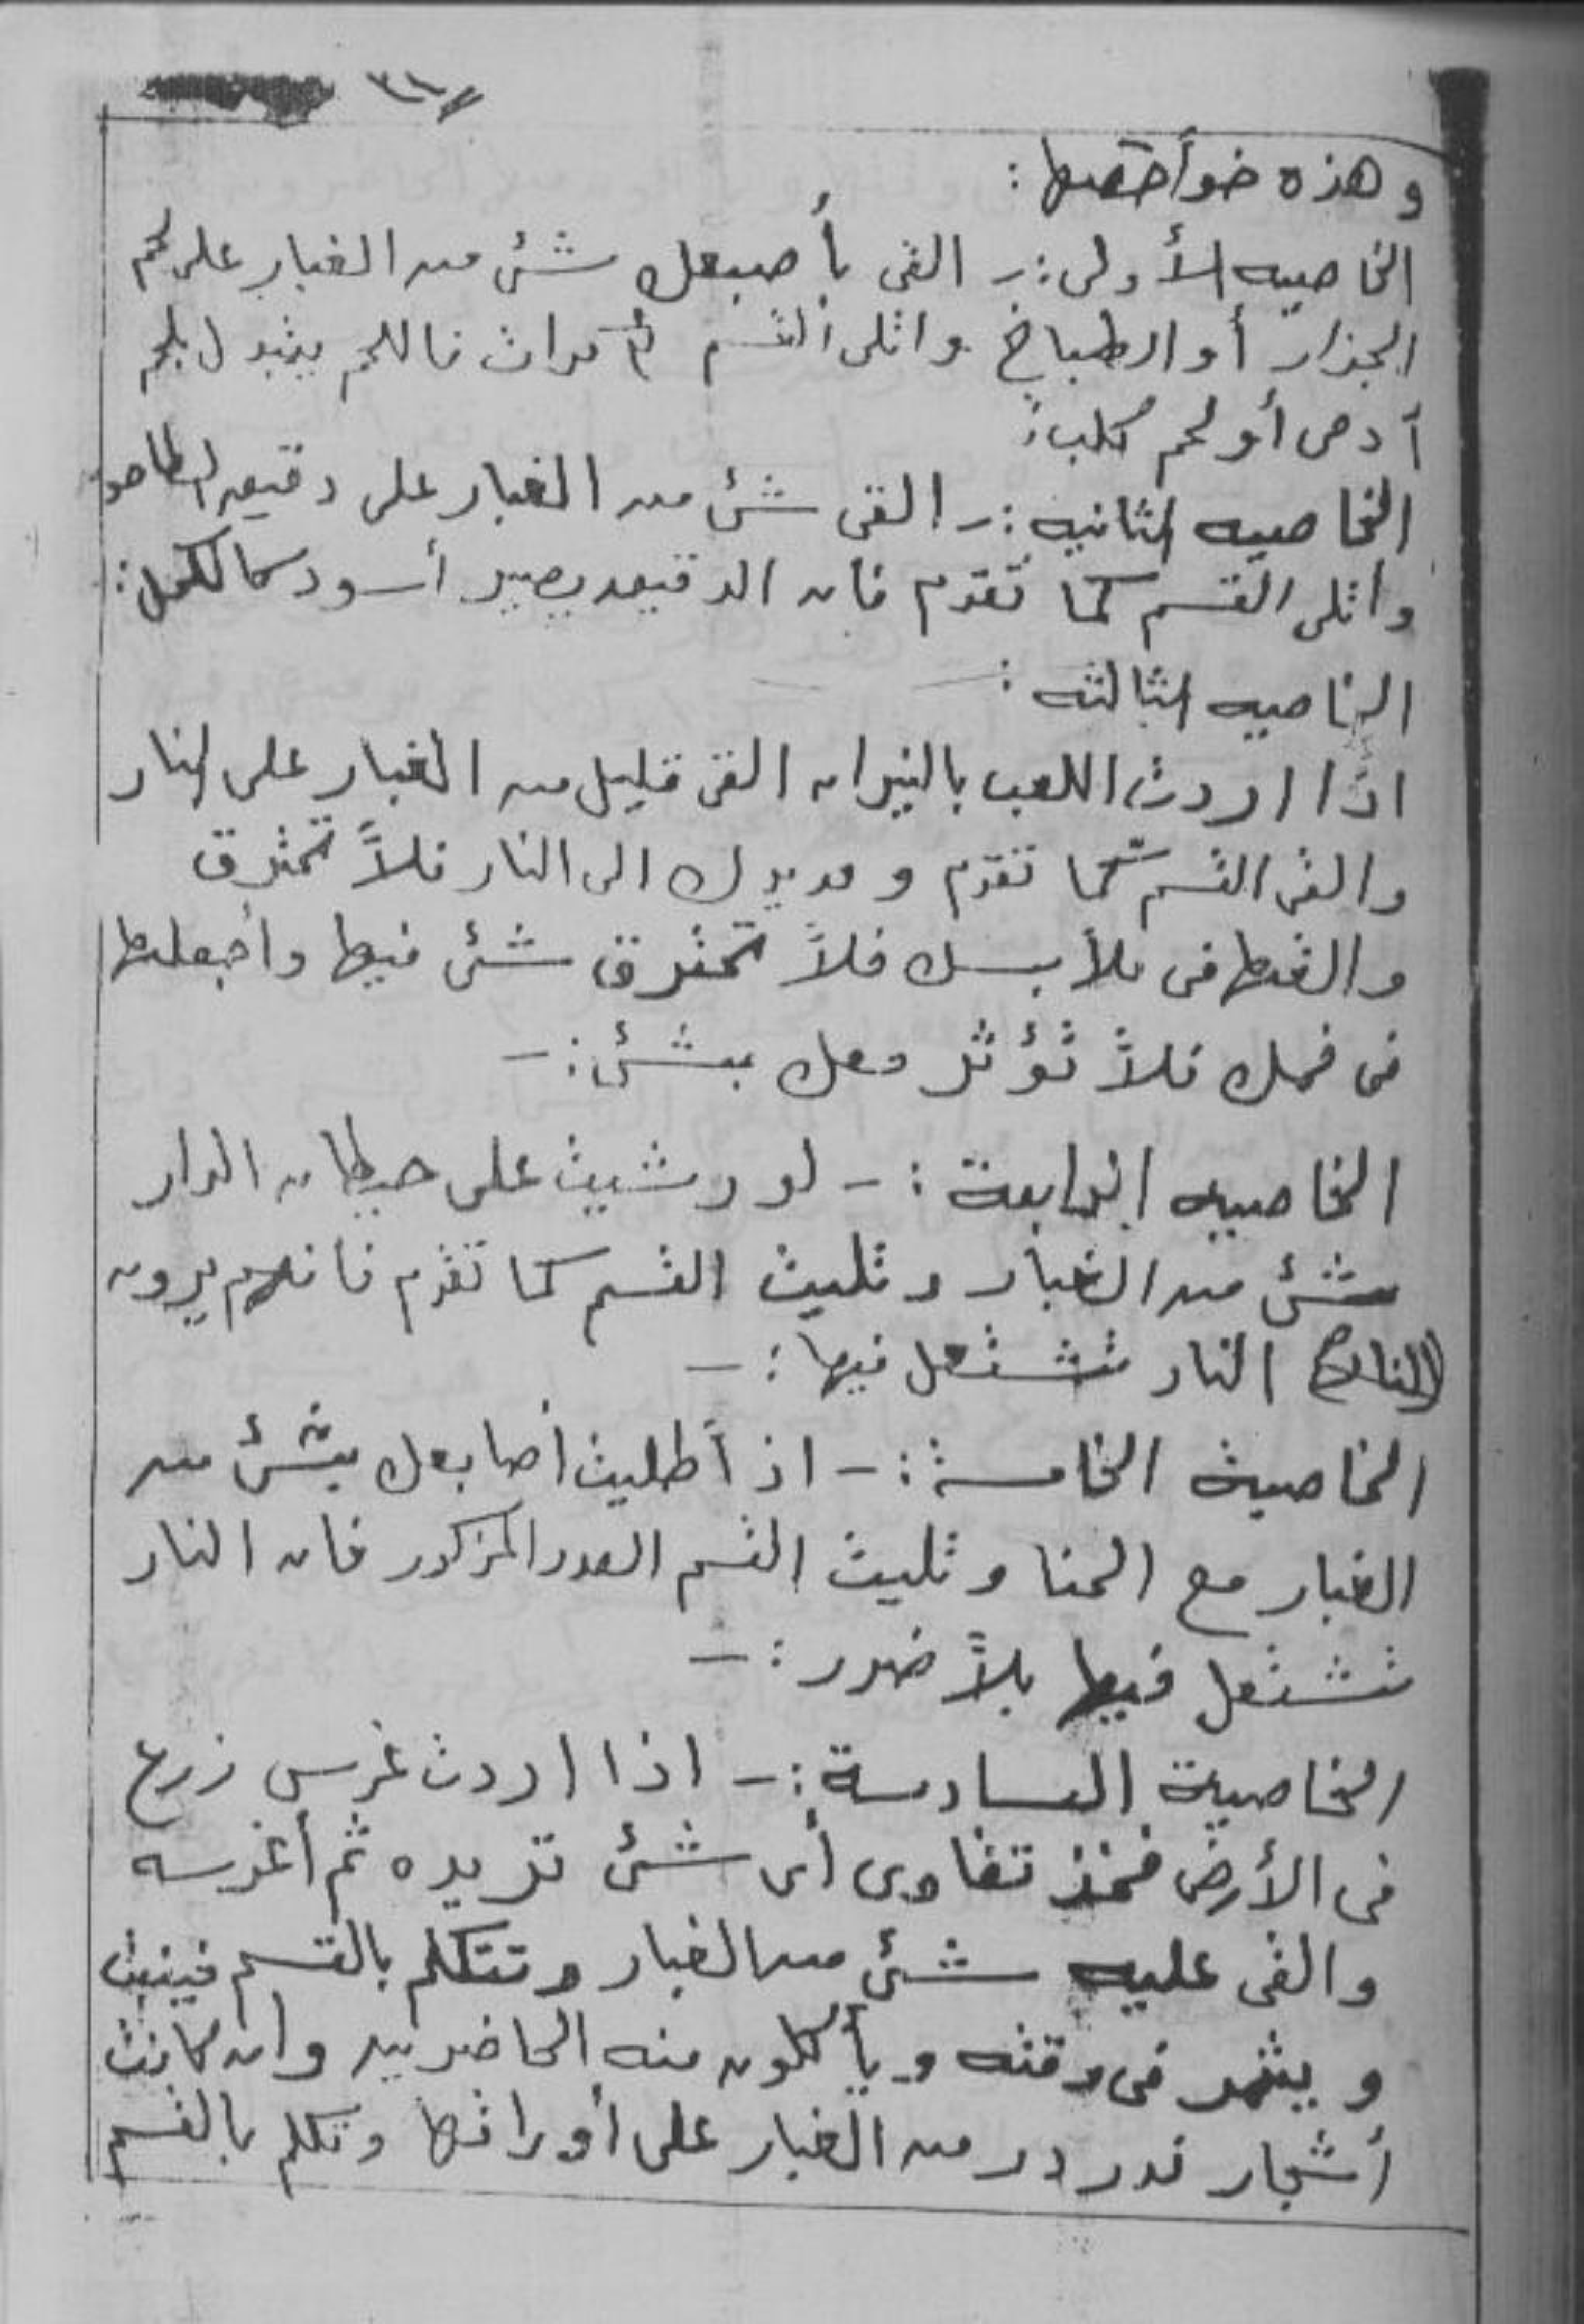 وهذه خوأصها :
الخاصيه الأولى :- القى بأصبعك شئ من الغبار على لحم
الجزار أو الطباخ واتلى القسم مرات فاللحم يتبدل بلحم
آدمى أو لحم كلب :
الخاصيه الثانيه :- القى شئ من الغبار على دقيق الطاحون
واتلى القسم كما تقدم فان الدقيق يصير أسود كالكحل :
الخاصيه الثالثه :
اذا اردت اللعب بالنيران القى قليل من الغبار على النار
والقى القسم كما تقدم ومد يدك الى النار فلاً تحترق
والقها فى ملأبسك فلاً تحترق شئ فيها واجعلها
فى فمك فلاً تؤثر معك بشئ :-
الخاصيه الرابعة :- لو رشيت على حيطان الدار
شئ من الغبار وتليت القسم كما تقدم فانهم يرون
(الناس) النار تشتعل فيها :-
الخاصية الخامسة :- اذ أطليت أصابعك بشئ من
الغبار مع الحنا وتليت القسم العدد المذكور فان النار
تشتعل فيها بلاً ضرر :-
الخاصية السادسة :- اذا اردت غرس زرع
فى الأرض فخذ تقاوى أى شئ تريده ثم أغرسه
والقى عليه شئ من الغبار وتتكلم بالقسم فينبت
ويثمر فى وقته ويأكلون منه الحاضرين وان كانت
أشجار فدردر من الغبار على أوراقها وتكلم بالقسم